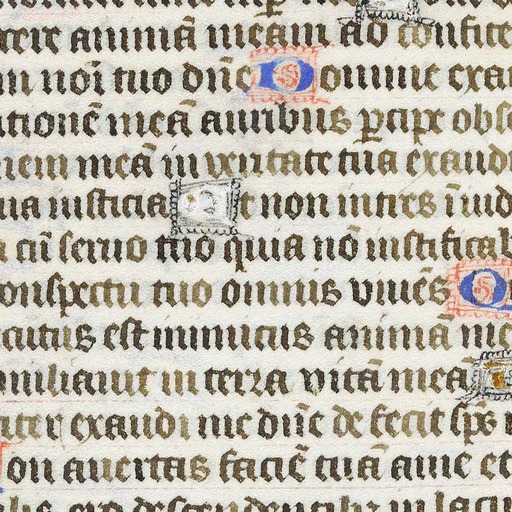 cere animā meam ad cōfite
m noī tuo dn̄e Domine exau
ationē meā auribus ꝑcipe obse
nem meā in veritate tua exaudi
ua iusticia Et non intres ī iud
cū seruo tuo quia nō iustificab
onspectu tuo omnis viuēs Q
cutus est inimicus animā me
miliauit in terra vitā meā
iter exaudi me dn̄e de fecit sp̄s
Non auertas faciē tuā a me et
descendentib in lacu